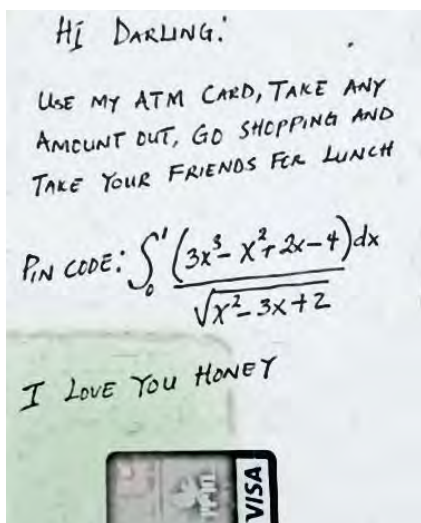 Hi DARLING:
USE MY ATM CARD, TAKE ANY
AMOUNT OUT, GO SHOPPING AND
TAKE YOUR FRIENDS FOR LUNCH
PIN CODE: ∫₀¹ (3x³ - x² + 2x - 4)dx / √(x² - 3x + 2)
I LOVE YOU HONEY
VISA